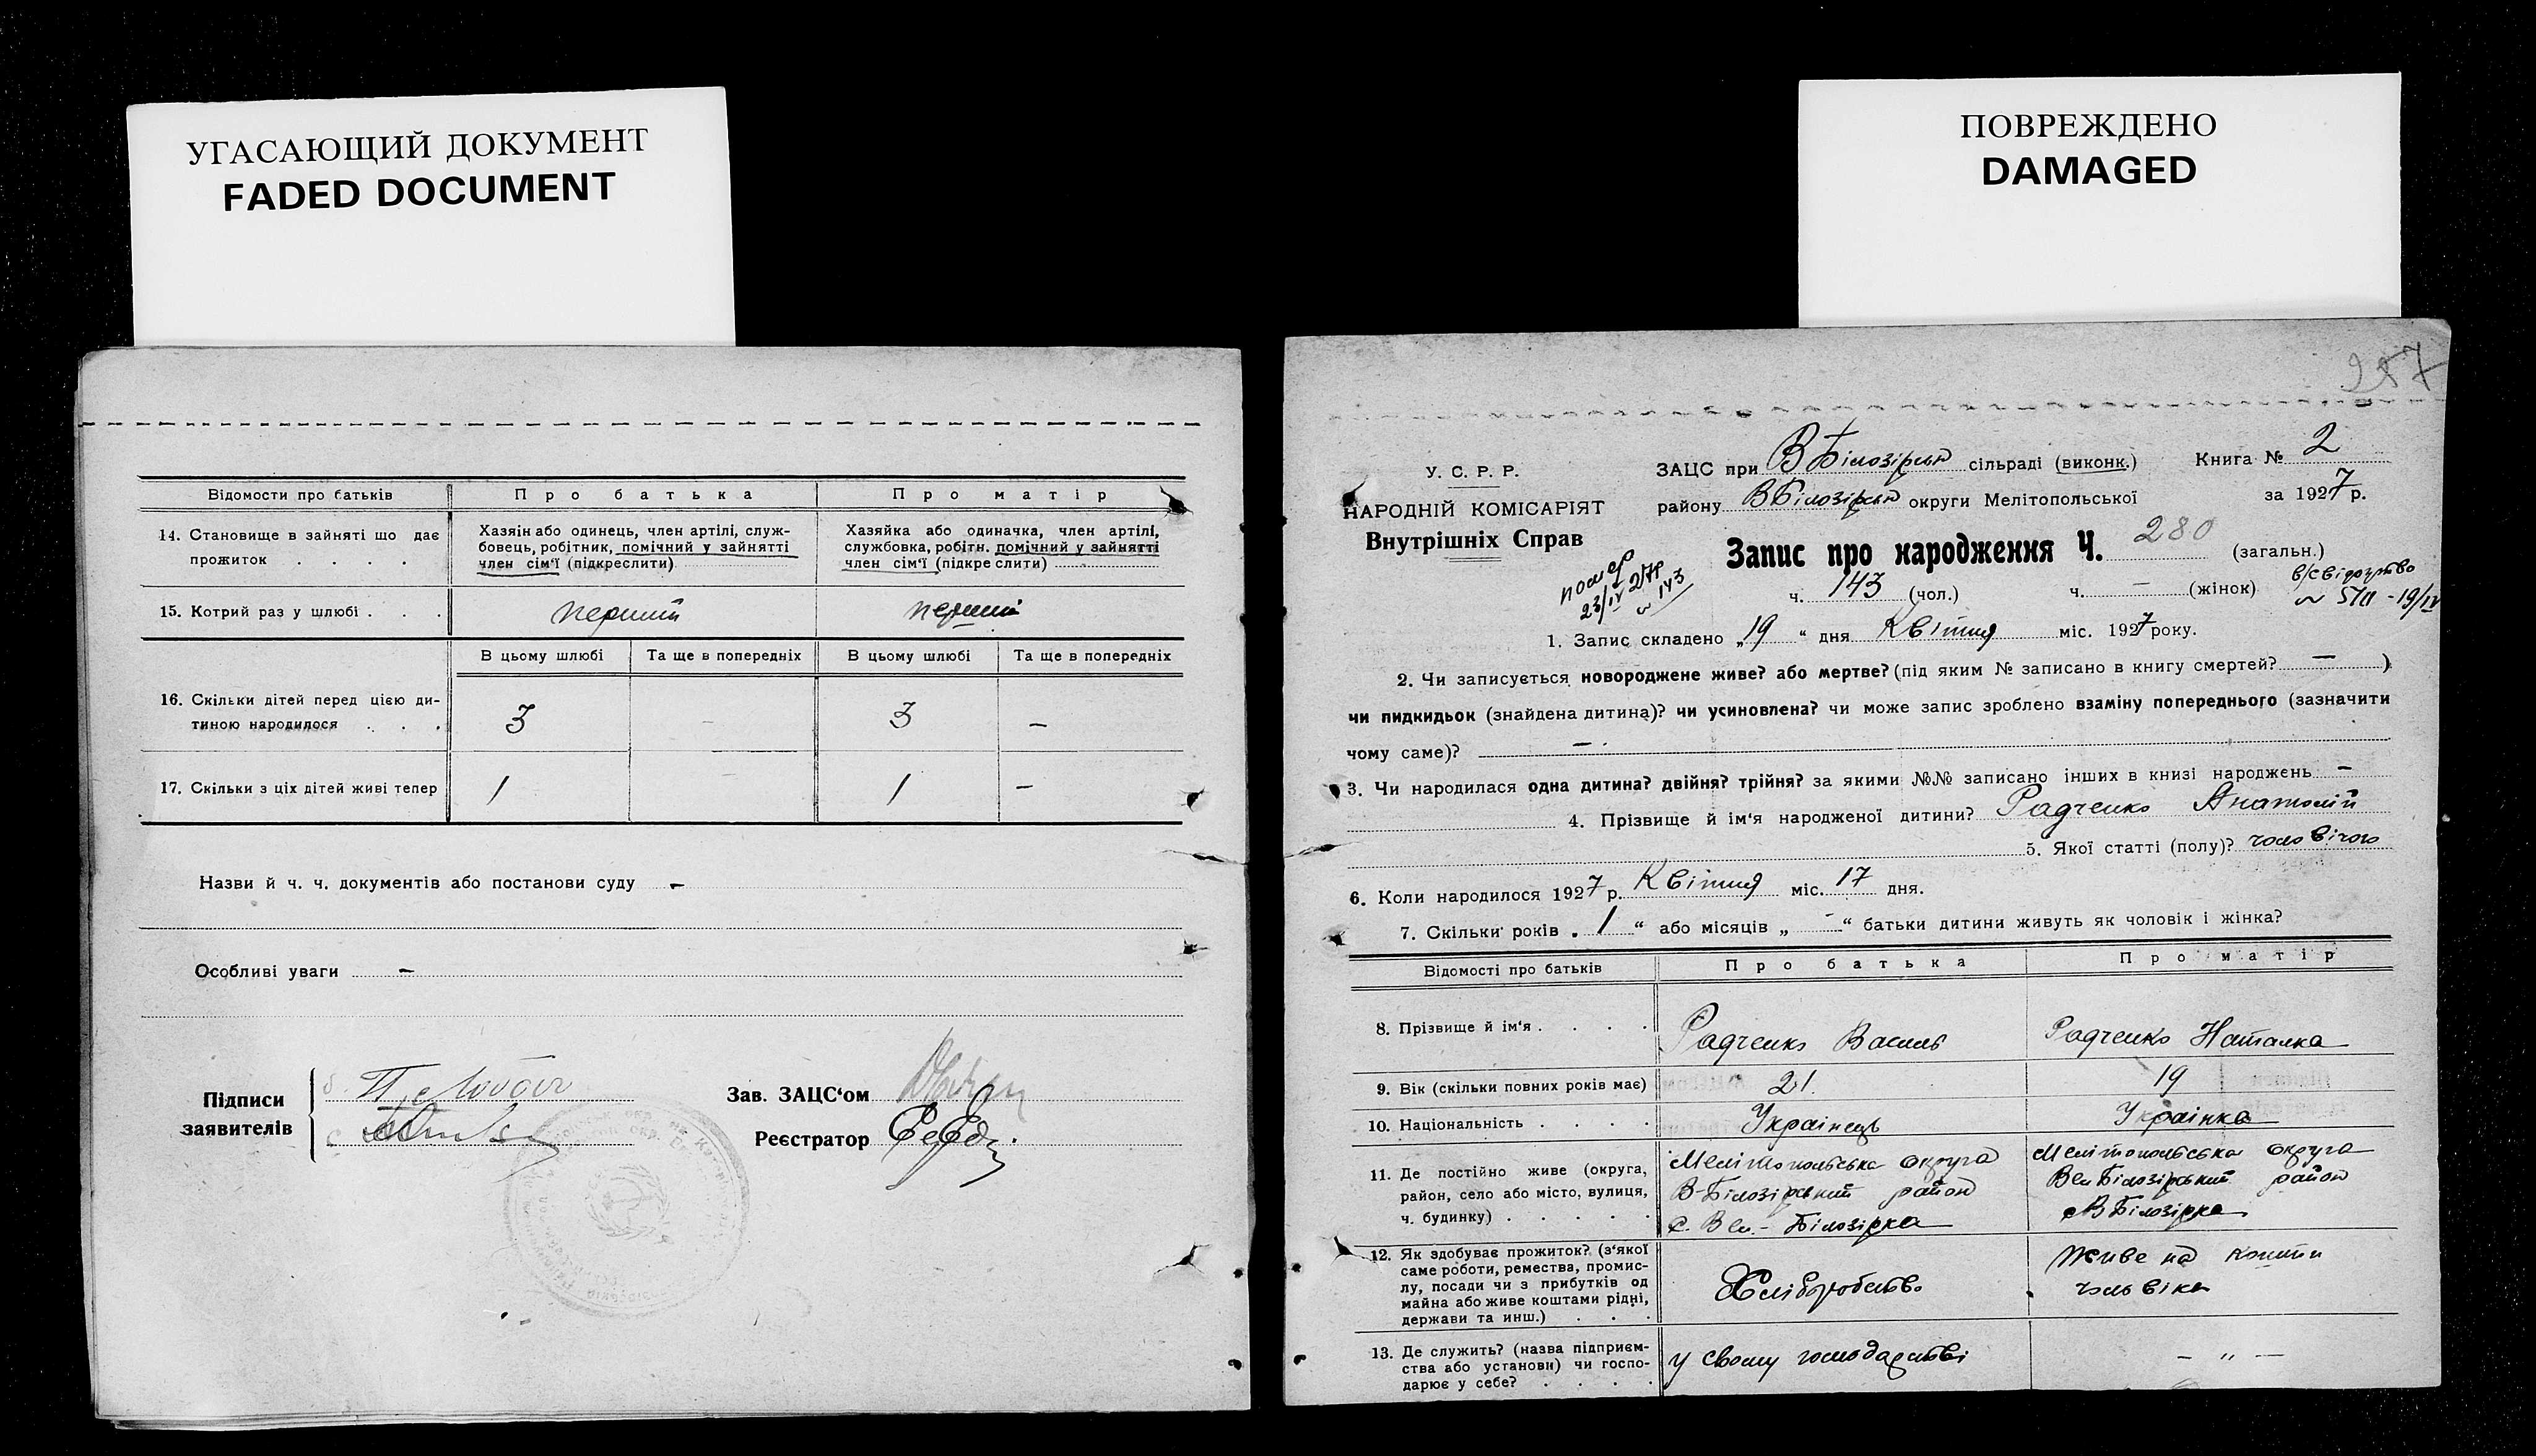 УГАСАЮЩИЙ ДОКУМЕНТ
FADED DOCUMENT
Відомости про батьків
Про батька
Про матір
14. Становище в зайняті що дає
прожиток . . . .
Хазяін або одинець, член артілі, служ-
бовець, робітник, помічний у зайнятті
член сім'ї (підкреслити)
Хазяйка або одиначка, член артілі,
службовка, робітн. помічний у зайнятті
член сім'ї (підкреслити)
15. Котрий раз у шлюбі . . .
перший
перший
В цьому шлюбі
Та ще в попередніх
В цьому шлюбі
Та ще в попередніх
16. Скільки дітей перед цією ди-
тиною народилося . . .
3
–
3
–
17. Скільки з ціх дітей живі тепер
1
–
1
–
Назви й ч. ч. документів або постанови суду –
Особливі уваги –
Підписи
заявителів
Зав. ЗАЦС'ом
Реєстратор
ПОВРЕЖДЕНО
DAMAGED
257
У. С. Р. Р.
НАРОДНІЙ КОМІСАРІЯТ
Внутрішніх Справ
ЗАЦС при В Білозірськ сільраді (виконк.) Книга № 2
району ВБілозірськ округи Мелітопольської за 1927 р.
Запис про народження Ч. 280 (загальн.)
ч. 143 (чол.) ч. – (жінок)
помер
23/IV 27р
№ 143
в/свідоцтво
1. Запис складено „19“ дня Квітня міс. 1927 року.
2. Чи записується новороджене живе? або мертве? (під яким № записано в книгу смертей? – )
чи пидкидьок (знайдена дитина)? чи усиновлена? чи може запис зроблено взаміну попереднього (зазначити
чому саме)? –
3. Чи народилася одна дитина? двійня? трійня? за якими №№ записано інших в книзі народжень –
4. Прізвище й ім'я народженої дитини? Радченко Анатолій
5. Якої статті (полу)? чоловічого
6. Коли народилося 1927 р. Квітня міс. 17 дня.
7. Скільки років „1“ або місяців „–“ батьки дитини живуть як чоловік і жінка?
Відомості про батьків
Про батька
Про матір
8. Прізвище й ім'я . . . .
Радченко Василь
Радченко Наталка
9. Вік (скільки повних років має)
21.
19
10. Національність . . . .
Українець
Українка
11. Де постійно живе (округа,
район, село або місто, вулиця,
ч. будинку) . . . . .
Мелітопольська округа
В-Білозірський район
с. Вел.- Білозірка
Мелітопольська округа
Вел Білозірський район
с В Білозірка
12. Як здобуває прожиток? (з'якої
саме роботи, ремества, промис-
лу, посади чи з прибутків од
майна або живе коштами рідні,
держави та инш.) . . .
Хліборобство
Живе на кошти
чоловіка
13. Де служить? (назва підприєм-
ства або установи) чи госпо-
дарює у себе? . . . .
у свому господарстві
– „ –